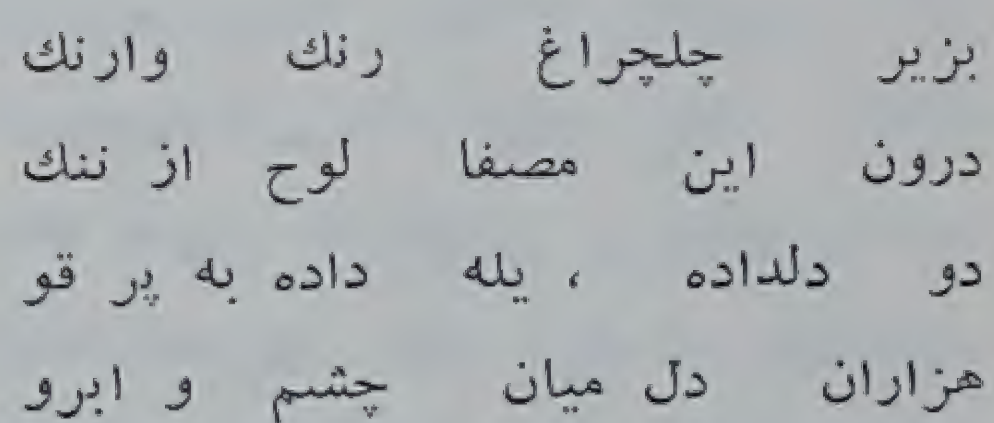 بزیر چلچراغ رنك وارنك
درون این مصفا لوح از ننك
دو دلداده ، یله داده به پر قو
هزاران دل میان چشم و ابرو